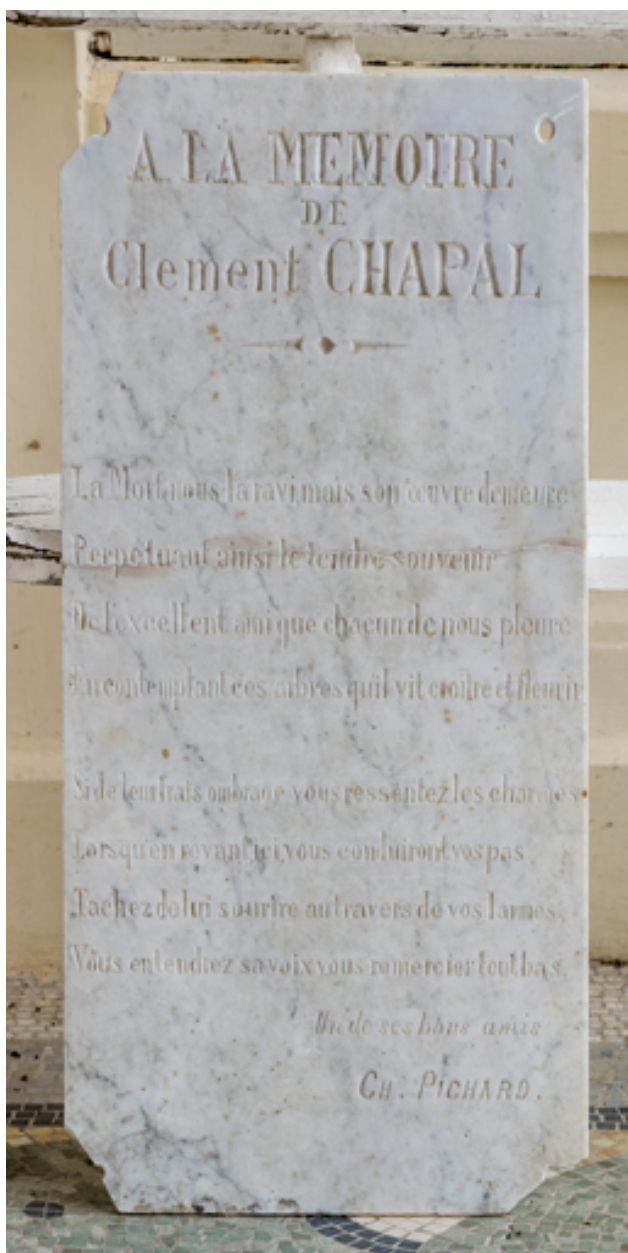 A LA MEMOIRE
DE
Clement CHAPAL
La Mort nous l'a ravi, mais son œuvre demeure
Perpétuant ainsi le tendre souvenir
De l'excellent ami que chacun de nous pleure
En contemplant ces arbres qu'il vit croître et fleurir
Si de leur frais ombrage vous ressentez les charmes
Lorsqu'en rêvant ici, vous conduiront vos pas
Tachez de lui sourire au travers de vos larmes,
Vous entendrez sa voix vous remercier tout bas.
Un de ses bons amis
CH. PICHARD.